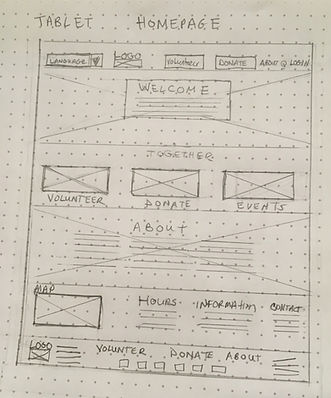 TABLET HOMEPAGE
LANGUAGE LOGO Volunteer DONATE ABOUT @ LOGIN
WELCOME
TOGETHER
VOLUNTEER DONATE EVENTS
ABOUT
MAP
HOURS INFORMATION CONTACT
LOGO VOLUNTER DONATE ABOUT